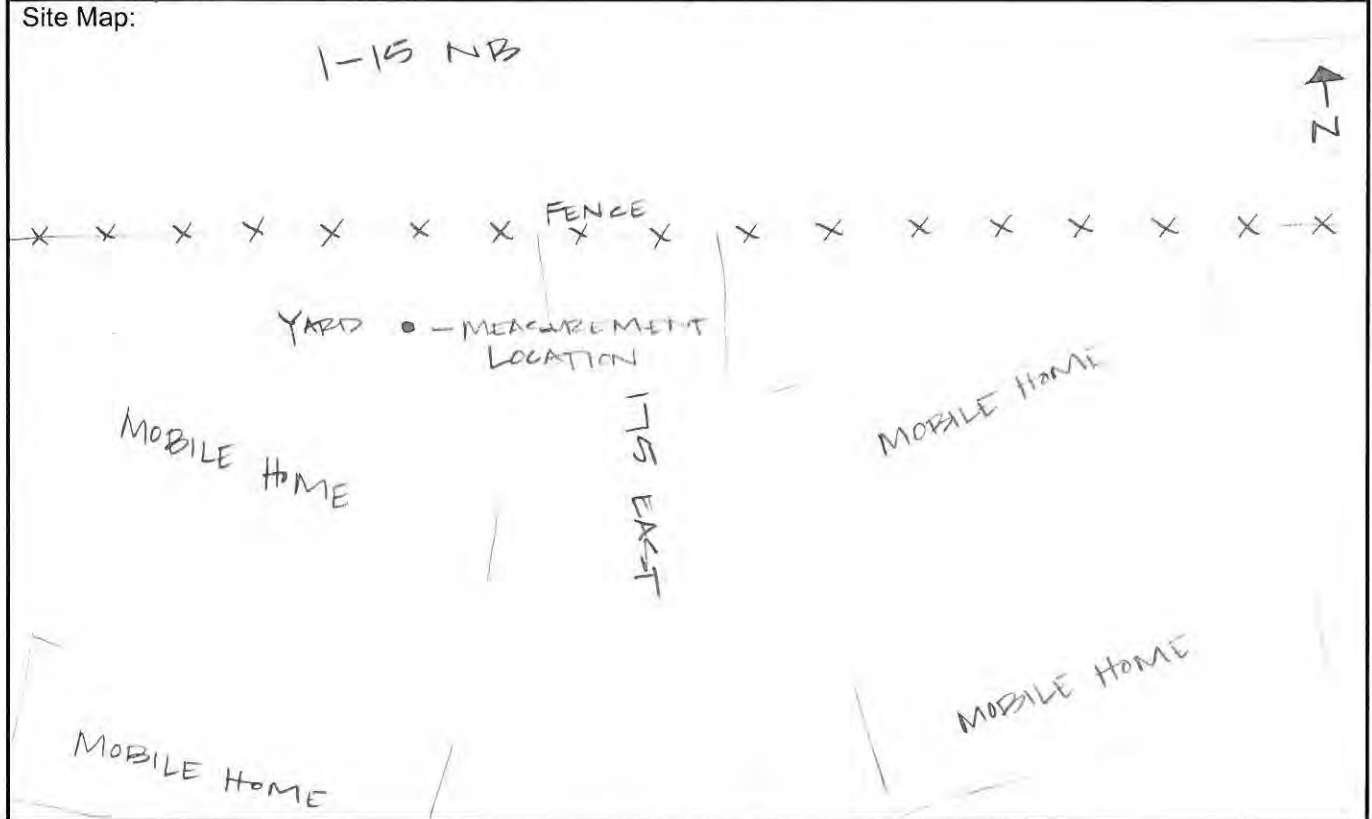 Site Map:
I-15 NB
N
FENCE
YARD • - MEASUREMENT
LOCATION
MOBILE HOME
175 EAST
MOBILE HOME
MOBILE HOME
MOBILE HOME